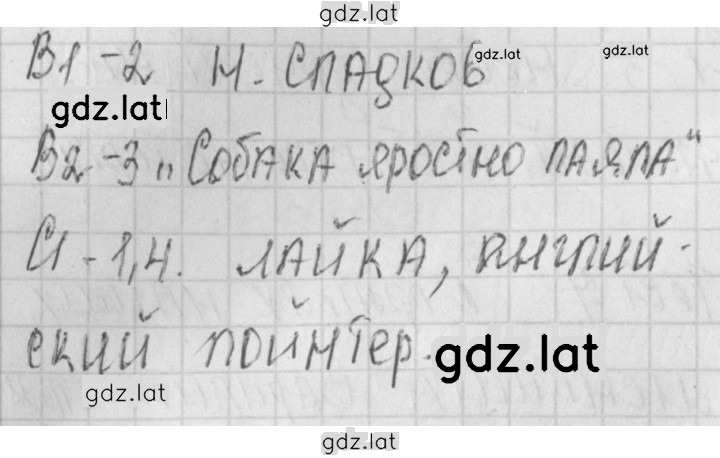 gdz.lat
В1-2 Н. СЛАДКОВ
gdz.lat
gdz.lat
gdz.lat
В2-3 „Собака яростно лаяла“
С1-1,4. ЛАЙКА, английский-
ский пойнтер.
gdz.lat
gdz.lat
gdz.lat